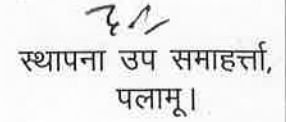 स्थापना उप समाहर्त्ता,
पलामू।